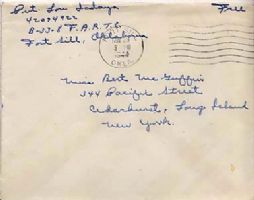 Pvt Lou
42094922
B-33-8 F.A.R.T.C.
Fort Sill, Oklahoma
Free
OKLA.
Miss Bert Mc Guffin
344 Pacific Street
Cedarhurst, Long Island
New York.